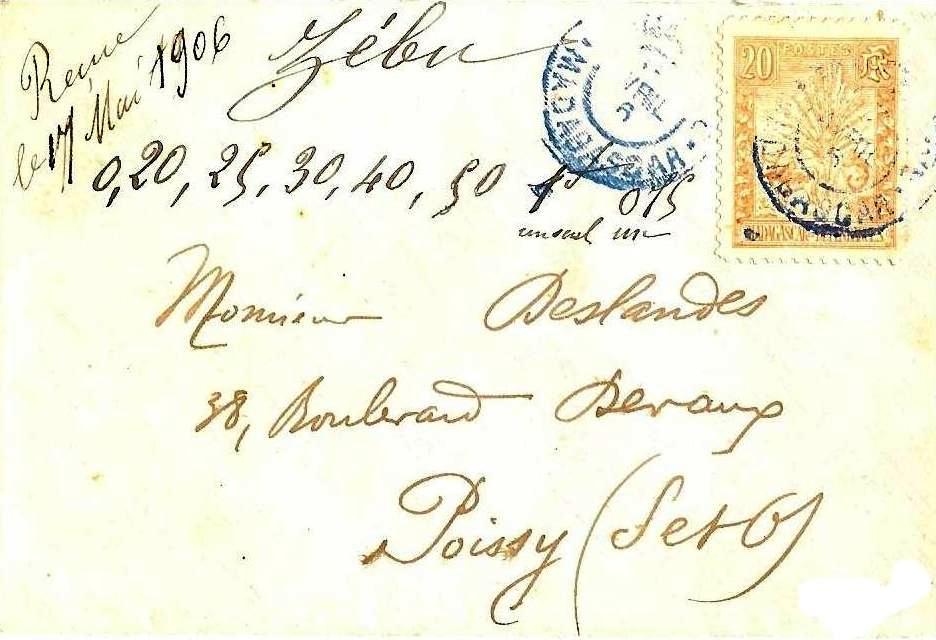 Reçue
le 17 Mai 1906
Zébu
0,20, 25, 30, 40, 50 1f 0,75
un seul
MADAGASCAR
20 POSTES RF
MADAGASCAR
MADAGASCAR
Monsieur Deslandes
38, Boulevard Devaux
Poissy (S et O)